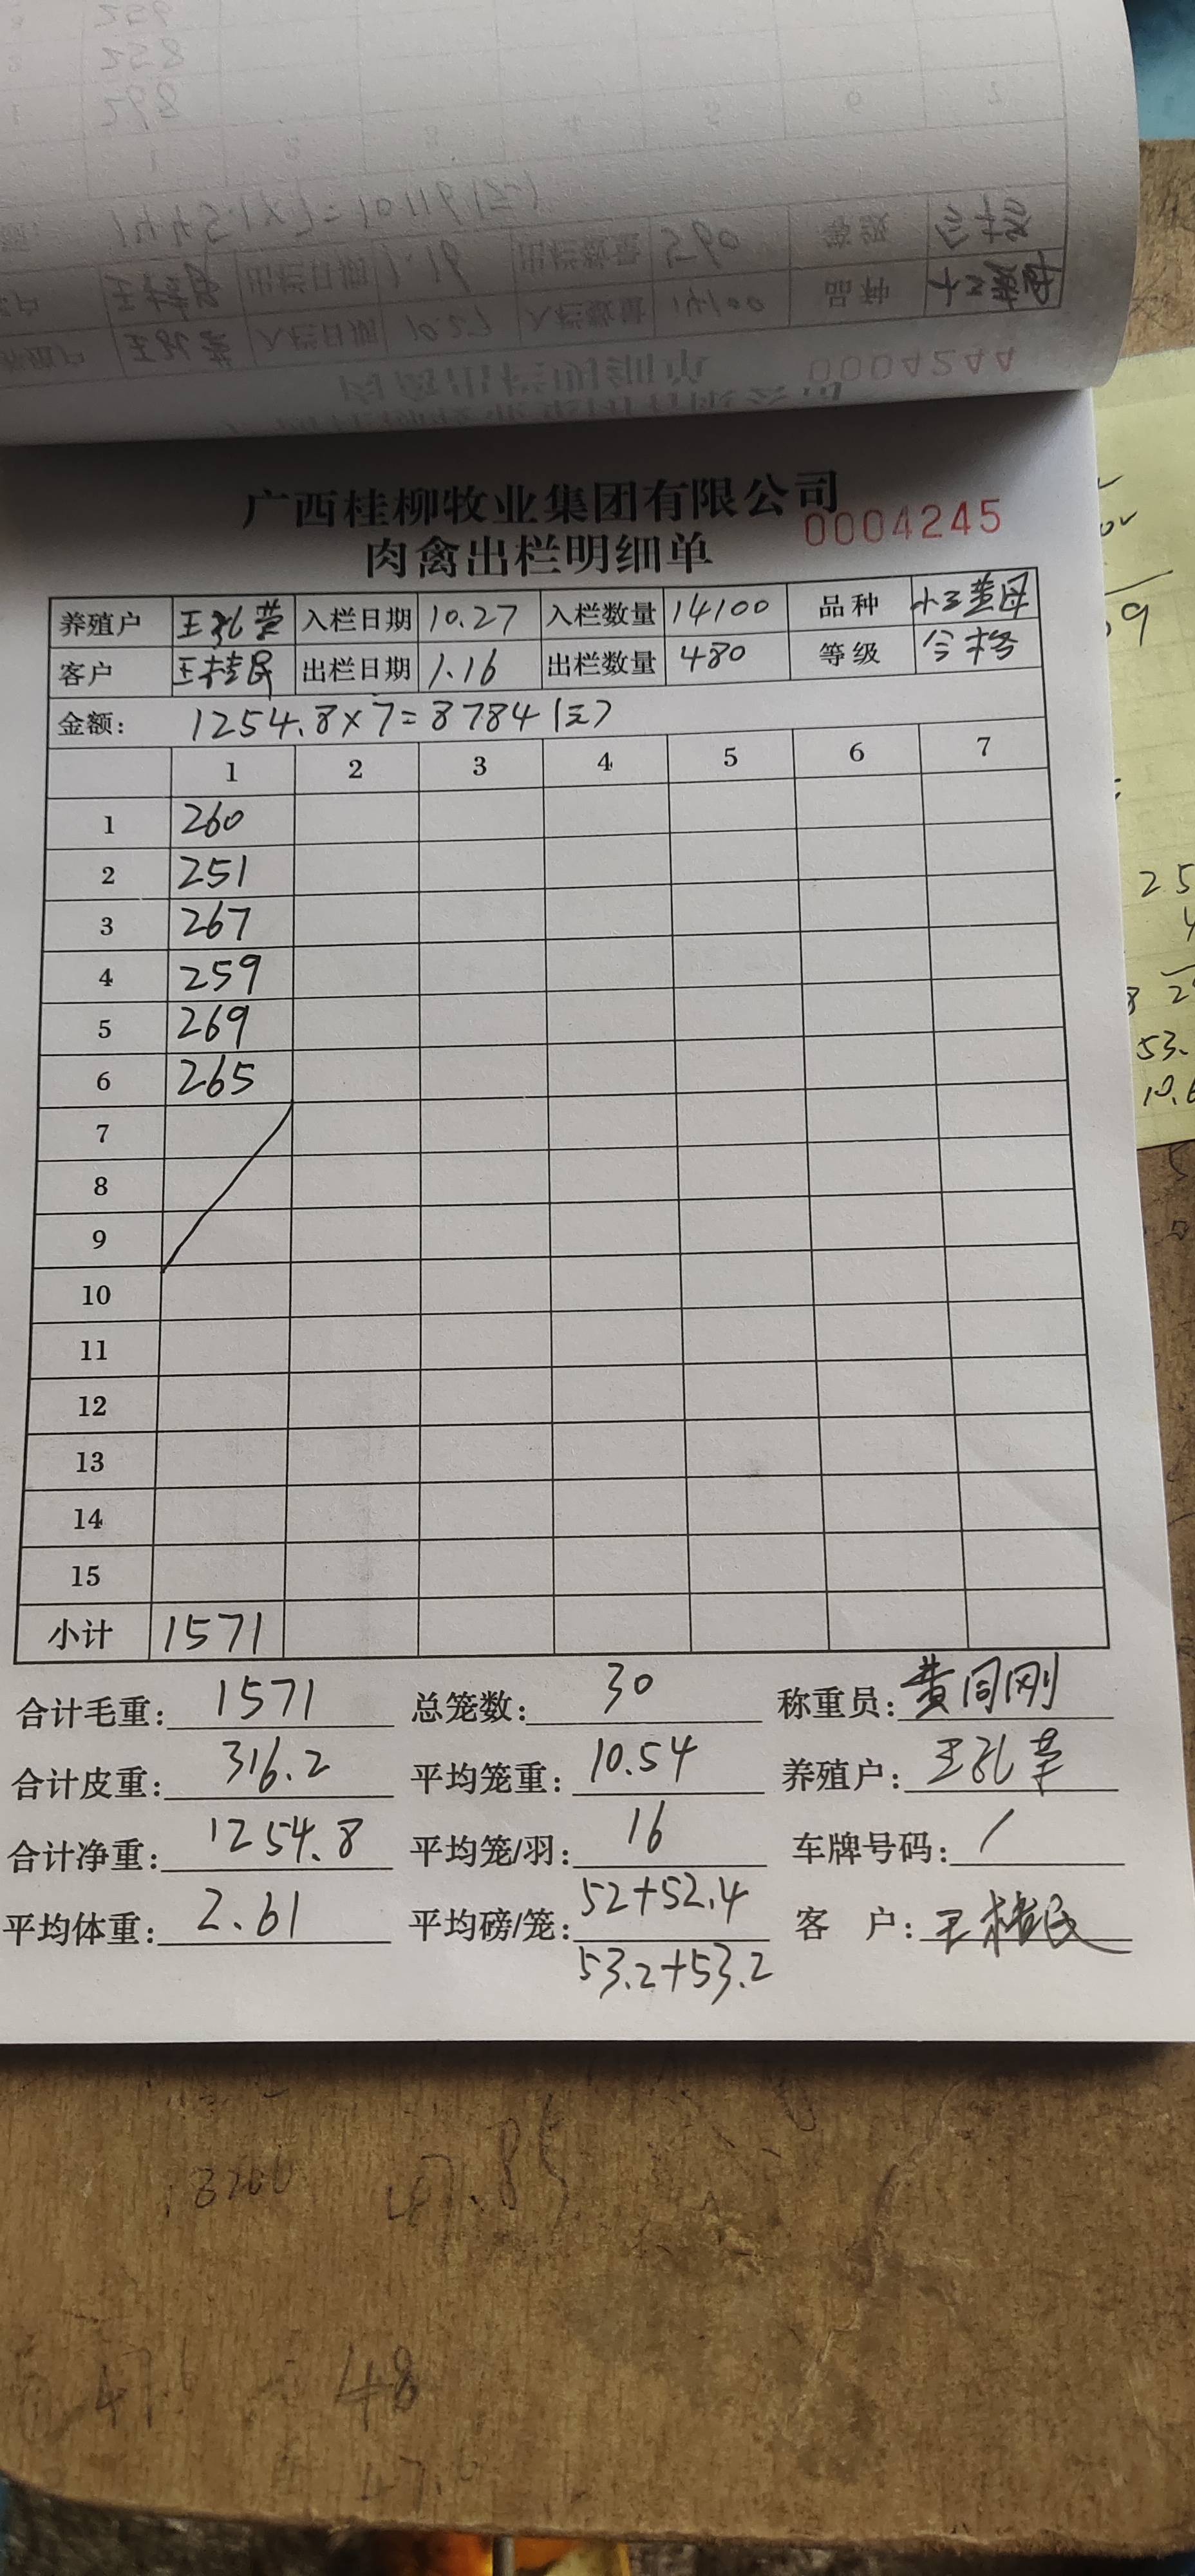 0004244
广西桂柳牧业集团有限公司
0004245
肉禽出栏明细单
养殖户 王孔荣 入栏日期 10.27 入栏数量 14100 品种 小三黄母
客户 王桂民 出栏日期 1.16 出栏数量 480 等级 合格
金额: 1254.8×7=8784(元)
1 2 3 4 5 6 7
1 260
2 251
3 267
4 259
5 269
6 265
7
8
9
10
11
12
13
14
15
小计 1571
合计毛重: 1571 总笼数: 30 称重员: 黄同刚
合计皮重: 316.2 平均笼重: 10.54 养殖户: 王孔荣
合计净重: 1254.8 平均笼/羽: 16 车牌号码: /
平均体重: 2.61 平均磅/笼: 52+52.4 客 户: 王桂民
53.2+53.2